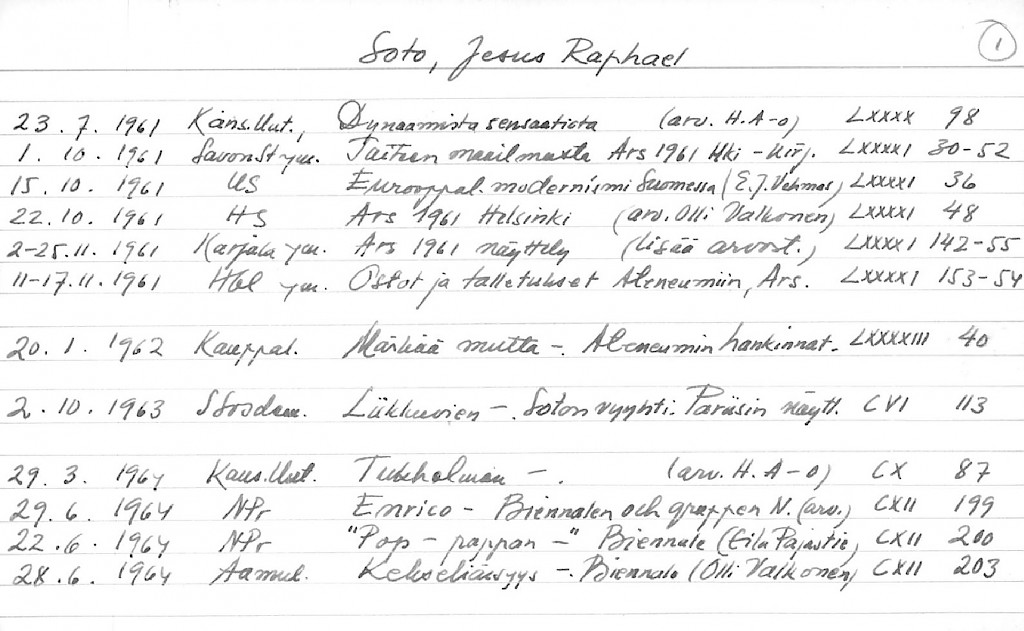 1
Soto, Jesus Raphael
23.7.1961 Kans.Uut., Dynaamista sensaatiota (arv. H.A-o) LXXXX 98
1.10.1961 SavonSt ym. Taiteen maailmasta Ars 1961 Hki - Kirj. LXXXXI 30-52
15.10.1961 US Eurooppal. modernismi Suomessa (E.J. Vehmas) LXXXXI 36
22.10.1961 HS Ars 1961 Helsinki (arv. Olli Valkonen) LXXXXI 48
2-25.11.1961 Karjala ym. Ars 1961 näyttely (lisää arvost.) LXXXXI 142-55
11-17.11.1961 Hbl ym. Ostot ja talletukset Ateneumiin, Ars. LXXXXI 153-54
20.1.1962 Kauppal. Märkää mutta -. Ateneumin hankinnat. LXXXXIII 40
2.10.1963 SSosdem. Liikkuvien -. Soton vyyhti. Pariisin näytt. CVI 113
29.3.1964 Kans.Uut. Tukholman -. (arv. H.A-o) CX 87
29.6.1964 NPr Enrico - Biennalen och gruppen N. (arv.) CXII 199
22.6.1964 NPr "Pop - pappan -" Biennale (Eila Pajastie) CXII 200
28.6.1964 Aamul. Kekseliäisyys -. Biennale (Olli Valkonen) CXII 203